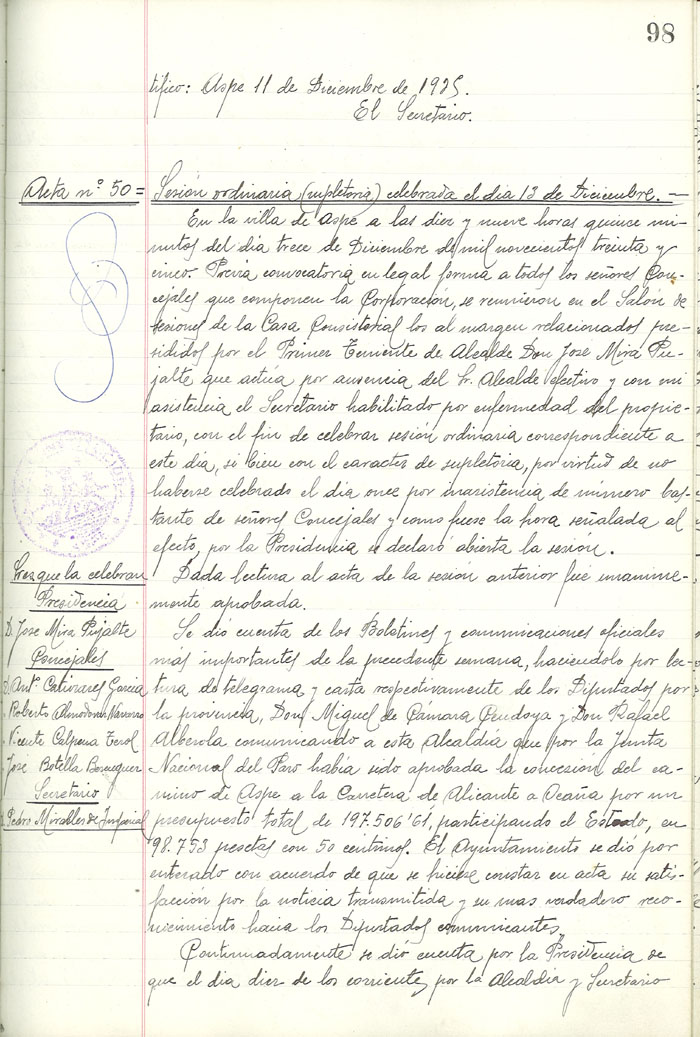 98
tifico: Aspe 11 de Diciembre de 1935.
El Secretario.
Acta nº 50 =
Sesión ordinaria (supletoria) celebrada el dia 13 de Diciembre. —
En la villa de Aspe a las diez y nueve horas quince mi-
nutos del dia trece de Diciembre de mil novecientos treinta y
cinco. Previa convocatoria en legal forma a todos los señores Con-
cejales que componen la Corporación, se reunieron en el Salón de
sesiones de la Casa Consistorial los al margen relacionados pre-
sididos por el Primer Teniente de Alcalde Don José Mira Pu-
jalte que actúa por ausencia del Sr. Alcalde efectivo y con mi
asistencia el Secretario habilitado por enfermedad del propie-
tario, con el fin de celebrar sesión ordinaria correspondiente a
este dia, si bien con el caracter de supletoria, por virtud de no
haberse celebrado el dia once por inasistencia de número bas-
tante de señores Concejales y como fuese la hora señalada al
efecto, por la Presidencia se declaró abierta la sesión.
Sres que la celebran
Presidencia
D. José Mira Pujalte
Concejales
D. Antº. Cañizares Garcia
" Roberto Almodovar Navarro
" Vicente Calpena Terol
" José Botella Berenguer
Secretario
D. Pedro Miralles de Imperial
Dada lectura al acta de la sesión anterior fué unanime-
mente aprobada.
Se dió cuenta de los Boletines y comunicaciones oficiales
más importantes de la precedente semana, haciéndolo por lec-
tura de telegrama y carta respectivamente de los Diputados por
la provincia, Don Miguel de Cámara Cendoya y Don Rafael
Alberola comunicando a esta Alcaldía que por la Junta
Nacional del Paro había sido aprobada la concesion del ca-
mino de Aspe a la Carretera de Alicante a Ocaña por un
presupuesto total de 197.506'61, participando el Estado, en
98.753 pesetas con 50 centimos. El Ayuntamiento se dió por
enterado con acuerdo de que se hiciese constar en acta su satis-
facción por la noticia transmitida y su mas verdadero reco-
nocimiento hacia los Diputados comunicantes.
Continuadamente se dió cuenta por la Presidencia de
que el dia diez de los corrientes, por la Alcaldia y Secretario